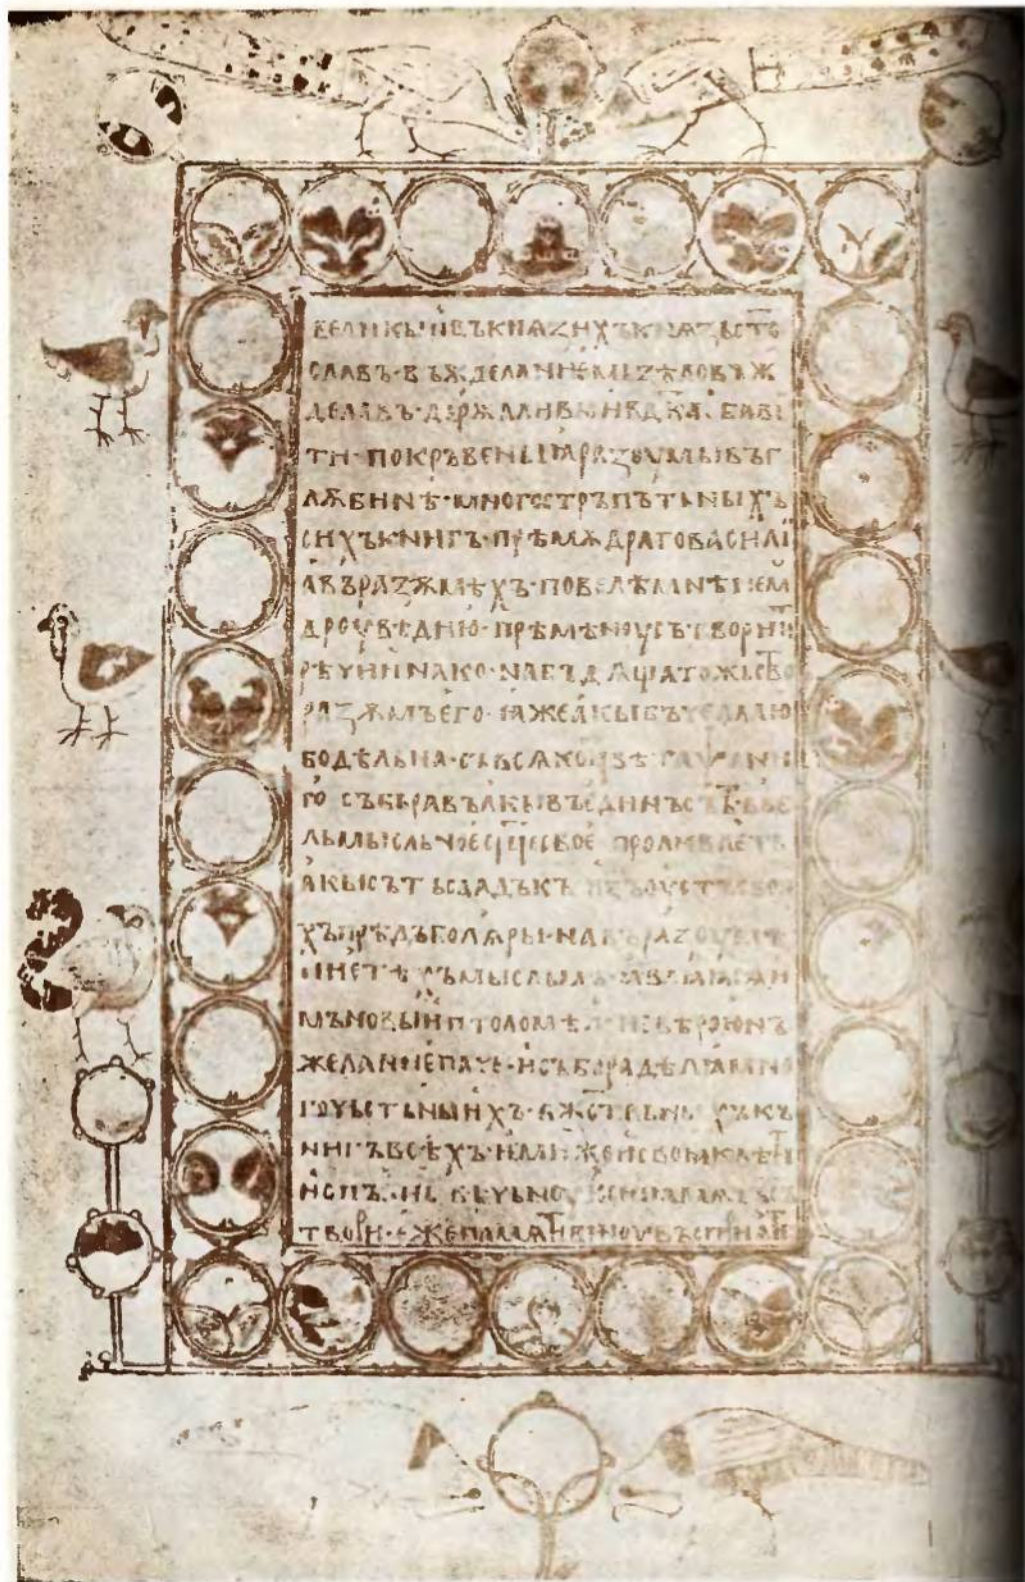 ВЕЛИКЪІИ ВЪ КНѦЗИХЪ КНѦЗЬ СТО
СЛАВЪ · ВЪЖДЕЛАНИЕМЬ ЗѢЛО ВЪЖ
ДЕЛАВЪ · ДЬРЖАЛИВЪІИ ВЛДКА · ОБАВИ
ТИ · ПОКРЪВЕНЪІѦ РАЗОУМЪІ ВЪ Г
ЛѪБИНѢ · МНОГОСТРЪПЪТЬНЪІХЪ
СИХЪ КНИГЪ · ПРѢМѪДРАГО ВАСИЛИ
А ВЪ РАЗѪМѢХЪ · ПОВЕЛѢ МНѢ НЕМ
ДРОУВѢДИЮ · ПРѢМѢНОУ СЪТВОРИТИ
РѢЧИ ИНАКО · НАБЪДѦЩА ТОЖЬСТВО
РАЗѪМЪ ЕГО · ІАЖЕ АКЪІ БЪЧЕЛА ЛЮ
БОДѢЛЬНА · СЪ ВСѦКОГО ЦВѢТА ПСАНИ
Ю СЪБЬРАВЪ АКЪІ ВЪ ЕДИНЪ СЪТЪ · ВЪ ВЕ
ЛЬМЫСЛЬНОЕ СРДЦЕ СВОЕ ПРОЛИВАЕТЬ
АКЪІ СЪТЬ СЛАДЪКЪ ИЗЪ ОУСТЪ СВОИ
ХЪ ПРѢДЪ БОЛѦРЪІ · НА ВЪРАЗОУМѢ
НИЕ ТѢХЪ МЫСЛЬМЪ · ІАВЛѦІАСѦ И
МЪ НОВЪІИ ПТОЛОМѢИ · НЕ ВѢРОЮ НЪ
ЖЕЛАНИЕ ПАЧЕ · И СЪБОРА ДѢЛѦ МНО
ГОЧЬСТЬНЪІИХЪ · БЖСТВЬНЪІХЪ КЪ
НИГЪ ВСѢХЪ · ИМИЖЕ И СВОІА КЛѢТИ
ИСПЪЛНЬ · ВѢЧЬНОУЮ СИ ПАМѦТЬ СЪ
ТВОРИ · ЕЖЕ ПАМѦТИ ВИНОУ ВЪСПРИѦТИ